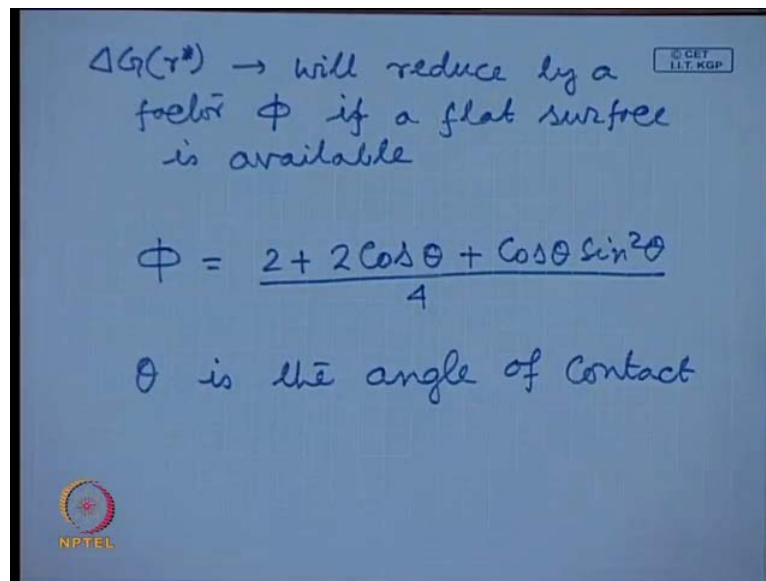 ΔG(r*) → will reduce by a
© CET
I.I.T. KGP
factor Φ if a flat surface
is available
Φ = (2 + 2 Cos θ + Cos θ Sin²θ) / 4
θ is the angle of contact
NPTEL